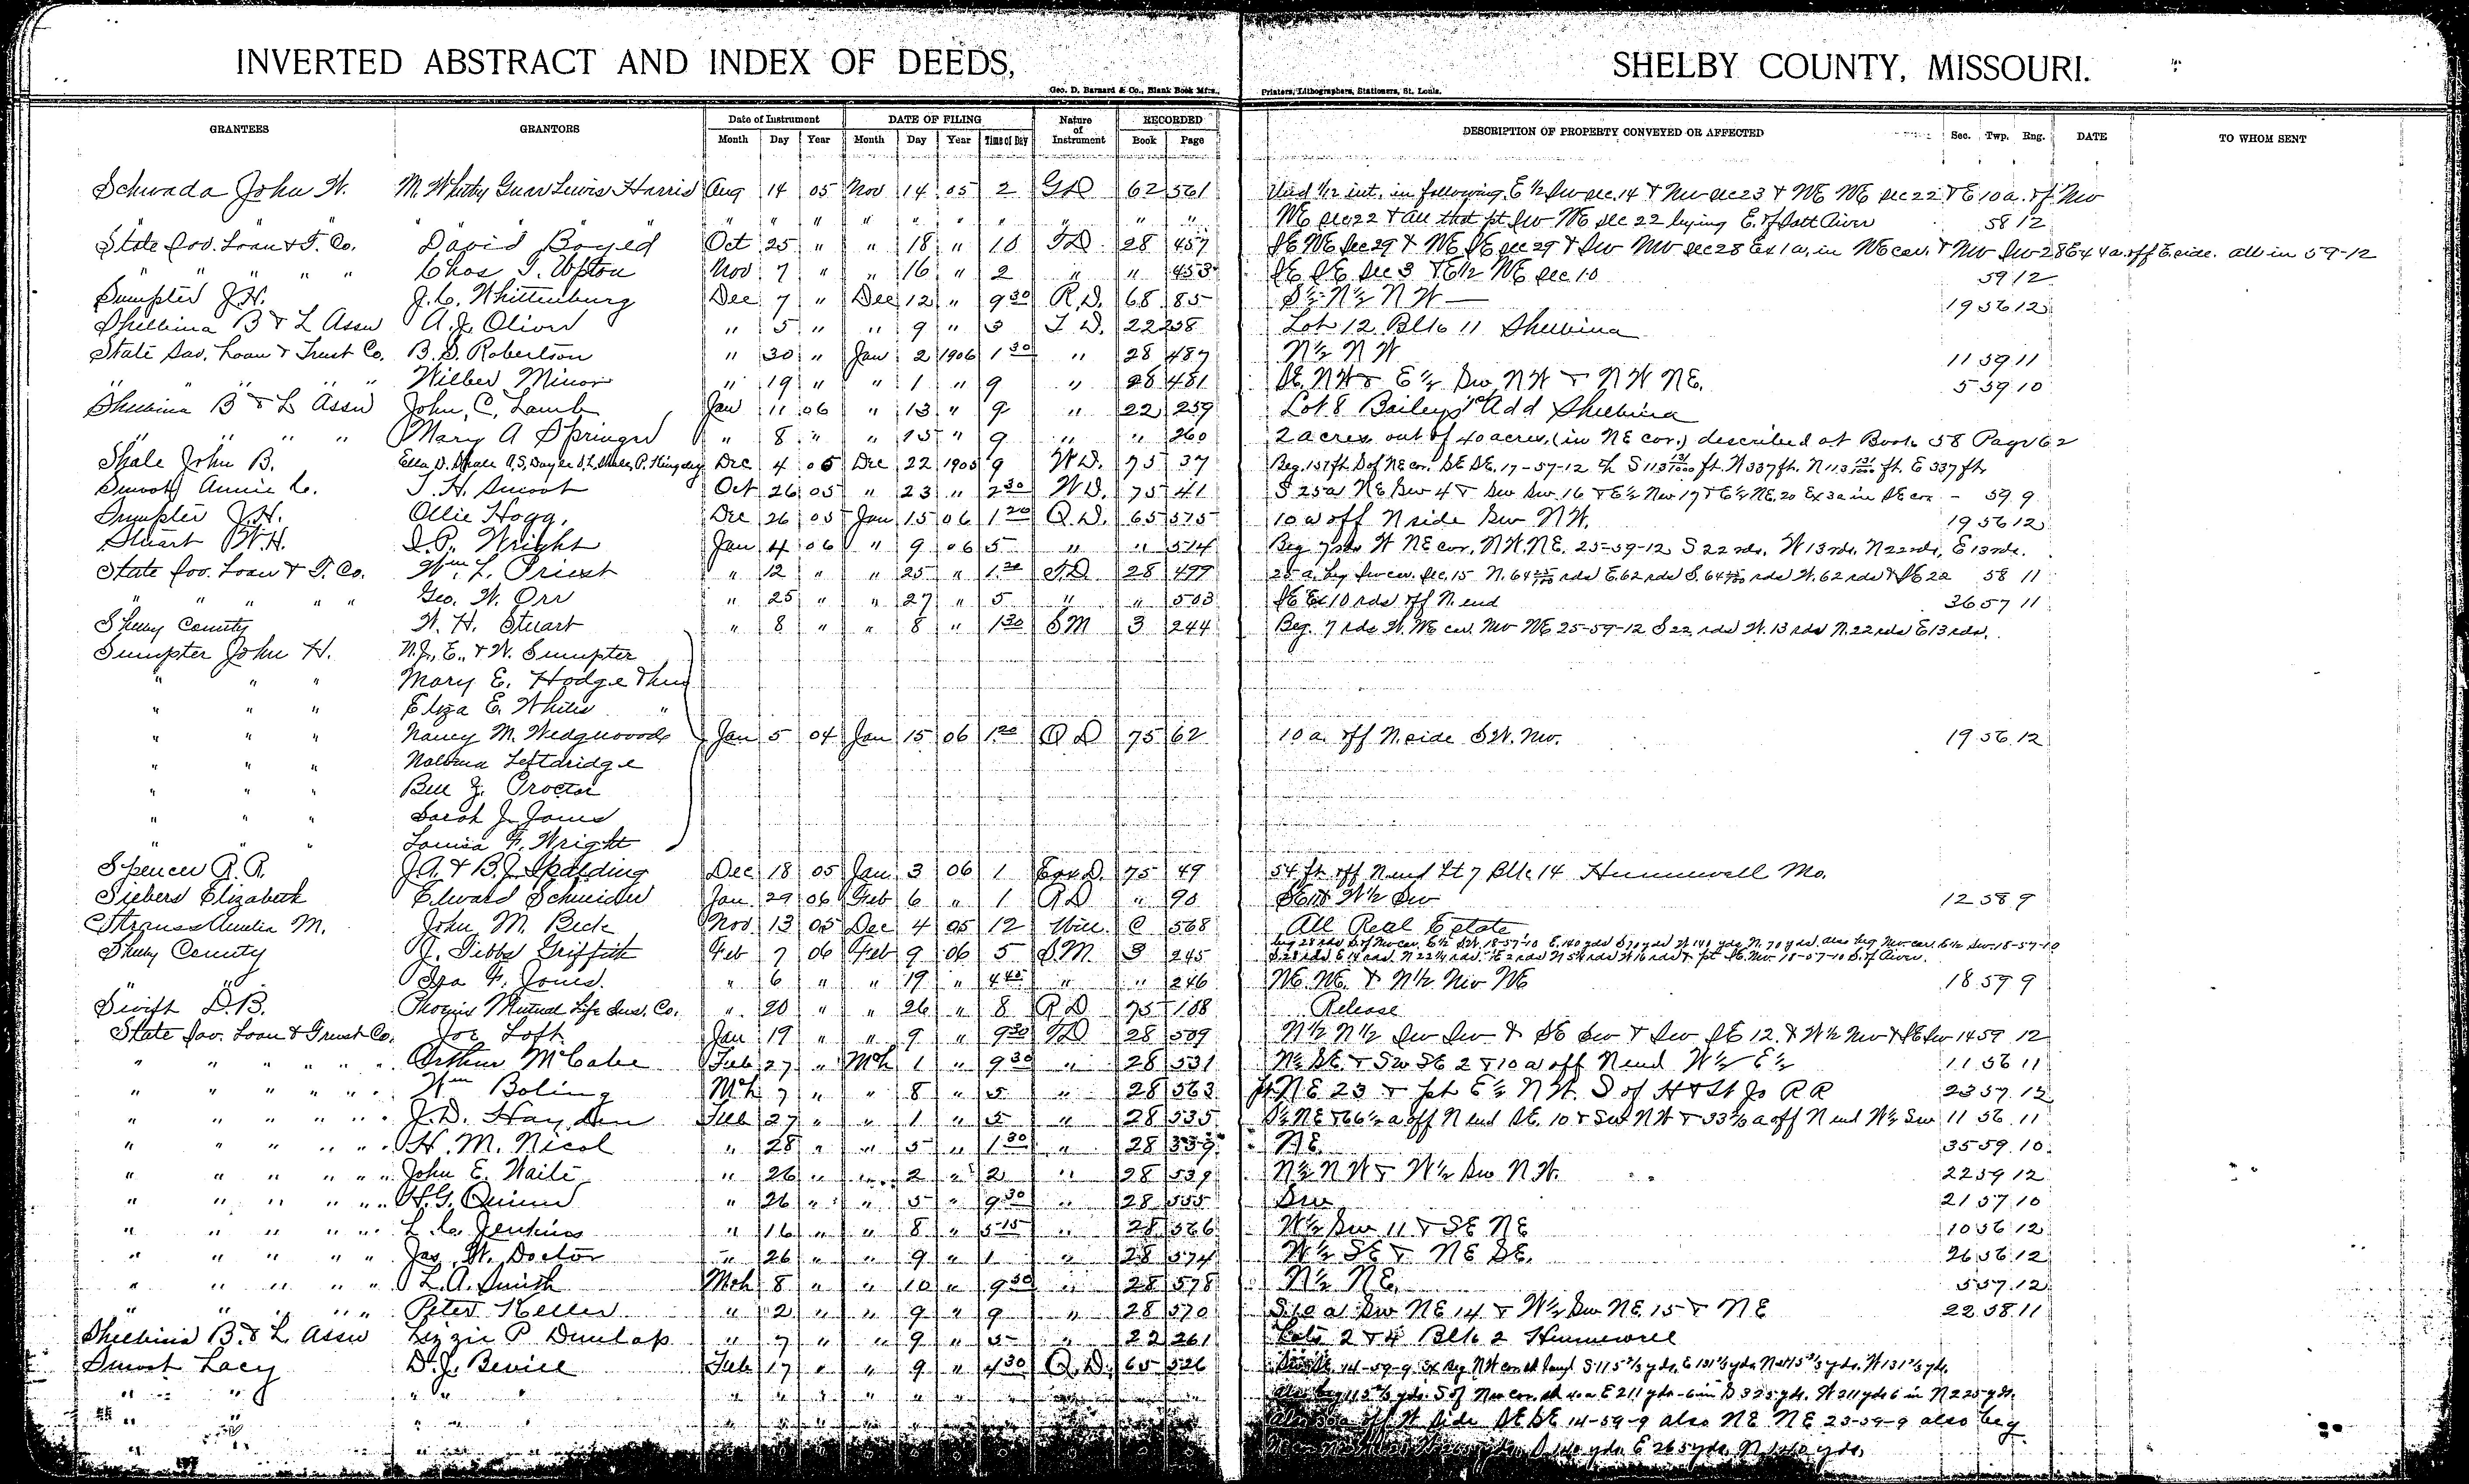 INVERTED ABSTRACT AND INDEX OF DEEDS, SHELBY COUNTY, MISSOURI.
Geo. D. Barnard & Co., Blank Book Mfrs., Printers, Lithographers, Stationers, St. Louis.
GRANTEES GRANTORS Date of Instrument DATE OF FILING Nature of Instrument RECORDED DESCRIPTION OF PROPERTY CONVEYED OR AFFECTED Sec. Twp. Rng. DATE TO WHOM SENT
Month Day Year Month Day Year Time of Day Book Page
Schwada John W. M. Whitby Guar Lewis Harris Aug 14 05 Nov 14 05 2 GD 62 561 Und 1/12 int. in following, E 1/2 Sw sec. 14 & Nw sec 23 & NE NE sec 22 & E 10 a. of Nw
" " " " " " " " " NE sec 22 & all that pt Sw NE sec 22 lying E. of Salt River 58 12
State Sav. Loan & T. Co. David Boyed Oct 25 " " 18 " 10 TD 28 457 SE NE sec 29 & NE SE sec 29 & Sw Nw sec 28 Ex 1 a. in NE cor. & Nw Sw 28 Ex 4 a. off E side. all in 59-12
" " " " " Chas T. Upton Nov 7 " " 16 " 2 " " 453 SE SE Sec 3 & E 1/2 NE sec 10 59 12
Sumpter J.H. J.C. Whittenburg Dec 7 " Dec 12 " 9 30 R.D. 68 85 S 1/2 N 1/2 N W 19 56 12
Shelbina B & L Assn A.J. Oliver " 5 " " 9 " 3 T D. 22 258 Lot 12 Blk 11 Shelbina
State Sav. Loan & Trust Co. B.S. Robertson " 30 " Jan 2 1906 1 30 " 28 487 N 1/2 N W 11 59 11
" " " " " Wilber Minor " 19 " " 1 " 9 " 28 481 SE NW & E 1/2 Sw NW & NW NE. 5 59 10
Shelbina B & L Assn John C. Lamb Jan 11 06 " 13 " 9 " 22 259 Lot 8 Baileys 1st Add Shelbina
" " " " Mary A Springer " 8 " " 15 " 9 " " 260 2 acres out of 40 acres, (in NE cor.) described at Book 58 Page 62
Shale John B. Dec 4 05 Dec 22 1905 9 W D. 75 37 Beg. 157 ft. S of NE cor. SE SE. 17-57-12 th S 113 131/1000 ft. W 337 ft. N 113 131/1000 ft. E 337 ft.
Smoot Annie C. J. H. Smoot Oct 26 05 " 23 " 2 30 W D. 75 41 S 25 a NE Sw 4 & Sw Sw. 16 & E 1/2 Nw 17 & E 1/2 NE. 20 Ex 3 a in SE cor - 59 9
Sumpter J.H. Ollie Hogg, Dec 26 05 Jan 15 06 1 20 Q.D. 65 575 10 a off N side Sw NW. 19 56 12
Stuart W.H. S.P. Wright Jan 4 06 " 9 06 5 " " 574 Beg 7 rds W NE cor. NW. NE. 25-59-12 S 22 rds. W 13 rds. N 22 rds. E 13 rds.
State Sav. Loan & T. Co. Wm. L. Priest " 12 " " 25 " 1 30 T.D. 28 499 25 a. beg Sw cor. Sec. 15 N. 64 rds E. 62 rds S. 64 rds W. 62 rds & SE 22 58 11
" " " " " Geo. W. Orr " 25 " " 27 " 5 " " 503 SE Ex 10 rds off N. end 36 57 11
Shelby County W. H. Stuart " 8 " " 8 " 1 30 S M 3 244 Beg. 7 rds W. NE cor. Nw NE 25-59-12 S 22 rds W. 13 rds N. 22 rds E 13 rds.
Sumpter John H. N.J., E., & W. Sumpter
" " " Mary E. Hodge
" " " Eliza E. White "
" " " Nancy M. Wedgwood Jan 5 04 Jan 15 06 1 20 Q D 75 62 10 a. off N. side SW. Nw. 19 56 12
" " " Leftdridge
" " " Bell J. Proctor
" " " Sarah J. Jones
" " " Louisa F. Wright
Spencer R. R. J.A. & B.J. Spalding Dec 18 05 Jan 3 06 1 Cor D. 75 49 54 ft. off N end Lt 7 Blk 14 Hunnewell Mo.
Siebers Elizabeth Edward Schneider Jan 29 06 Feb 6 " 1 Q D " 90 W 1/2 Sw 12 58 9
Strauss Amelia M. John M. Beck Nov 13 05 Dec 4 05 12 Will C 568 All Real Estate
Shelby County J. Tibbs Griffith Feb 7 06 Feb 9 06 5 S.M. 3 245 beg 28 rds S. of Nw cor. E 1/2 SW. 18-57-10 E. 140 yds S 70 yds W 140 yds N. 70 yds. also beg Nw cor. E 1/2 Sw. 18-57-10
pt SE. Nw 18-57-10 S. of River.
" Ira F. Jones. " 6 " " 19 " 4 45 " " 246 NE. NE. & N 1/2 Nw NE 18 59 9
Swift D.B. Phoenix Mutual Life Ins. Co. " 20 " " 26 " 8 R D 75 108 Release
State Sav. Loan & Trust Co. Joe Loft Jan 19 " " 9 " 9 30 TD 28 509 N 1/2 N 1/2 Sw Sw & SE Sw & Sw SE 12. & W 1/2 Nw & SE Sw 14 59 12
" " " " " Arthur McCabe Feb 27 " Mch 1 " 9 30 " 28 531 N 1/2 SE & Sw SE 2 & 10 a off N end W 1/2 E 1/2 11 56 11
" " " " " Wm Boling Mch 7 " " 8 " 5 " 28 563 pt NE 23 & pt E 1/2 NW. S of H & St Jo RR 23 57 12
" " " " " J.D. Hayden Feb 27 " " 1 " 5 " 28 535 S 1/2 NE & 66 1/2 a off N end SE. 10 & Sw NW & 33 1/3 a off N end W 1/2 Sw 11 56 11
" " " " " H. M. Nicol " 28 " " 5 " 1 30 " 28 NE. 35 59 10
" " " " " John E. Waite " 26 " " 2 " 2 " 28 539 N 1/2 NW & W 1/2 Sw NW. 22 59 12
" " " " " H.G. Quinn " 26 " " 5 " 9 30 " 28 555 Sw 21 57 10
" " " " " L. C. Jenkins " 16 " " 8 " 5 15 " 28 566 W 1/2 Sw 11 & SE NE 10 56 12
" " " " " Jas. W. Doctor " 26 " " 9 " 1 " 28 574 W 1/2 SE & NE SE. 26 56 12
" " " " " L.A. Smith Mch 8 " " 10 " 9 30 " 28 578 N 1/2 NE. 5 57 12
" " " " " Peter Keller " 2 " " 9 " 9 " 28 570 S 10 a Sw NE 14 & W 1/2 Sw NE. 15 & NE 22 58 11
Shelbina B. & L Assn Lizzie P. Dunlap " 7 " " 9 " 5 " 22 261 Lots 2 & 4 Blk 2 Hunnewell
Smoot Lacy D.J. Bevill Feb 17 " " 9 " 4 30 Q.D. 65 526 14-59-9 Ex beg NW cor
S of Nw cor. E 211 yds-6 in S 325 yds. W 211 yds 6 in N 225 yds.
off W side SE SE 14-59-9 also NE NE 23-59-9 also beg
S 140 yds. E 265 yds. N 140 yds.